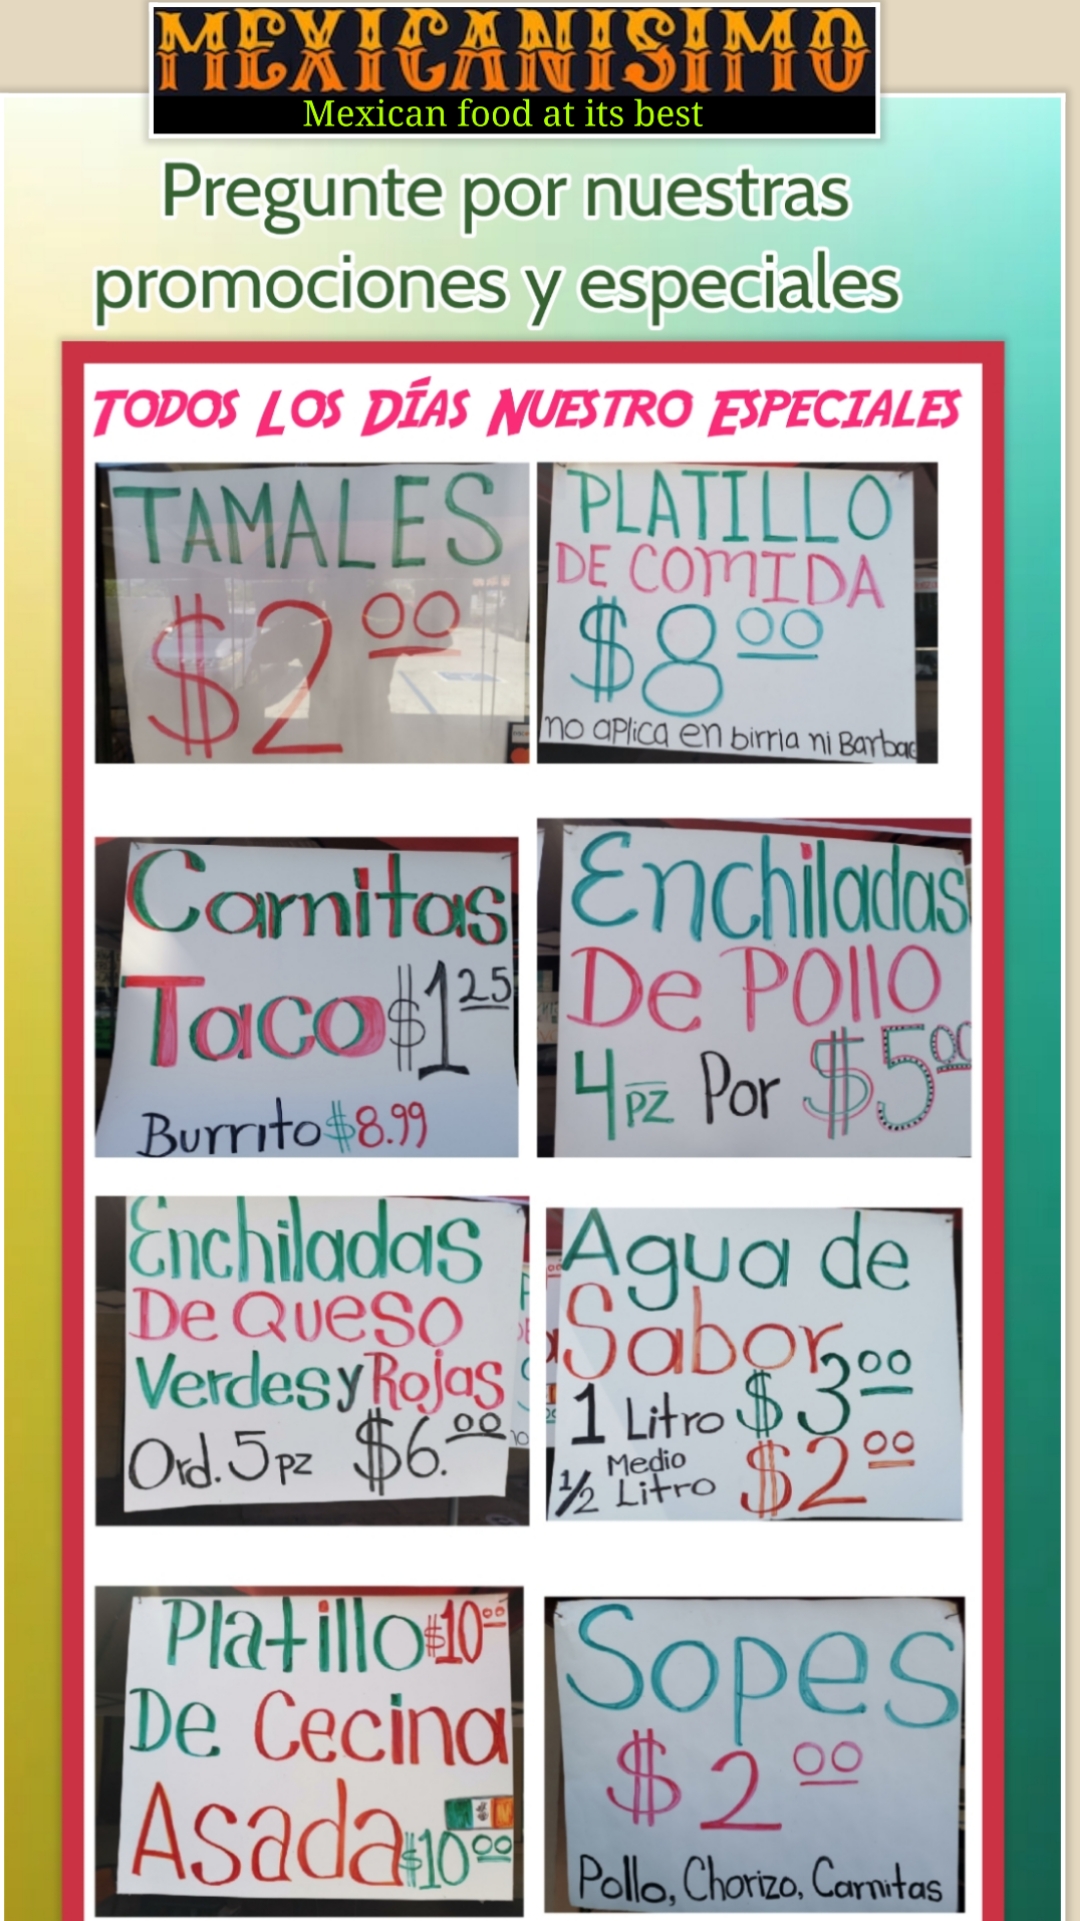 MEXICANISIMO
Mexican food at its best
Pregunte por nuestras
promociones y especiales
TODOS LOS DÍAS NUESTRO ESPECIALES
TAMALES
$2.00
PLATILLO
DE COMIDA
$8.00
no aplica en birria ni Barbac
Carnitas
Taco $1.25
Burrito $8.99
Enchiladas
De Pollo
4 pz Por $5.00
Enchiladas
De Queso
Verdes y Rojas
Ord. 5 pz $6.00
Agua de
Sabor
1 Litro $3.00
1/2 Medio Litro $2.00
Platillo $10.00
De Cecina
Asada $10.00
Sopes
$2.00
Pollo, Chorizo, Carnitas